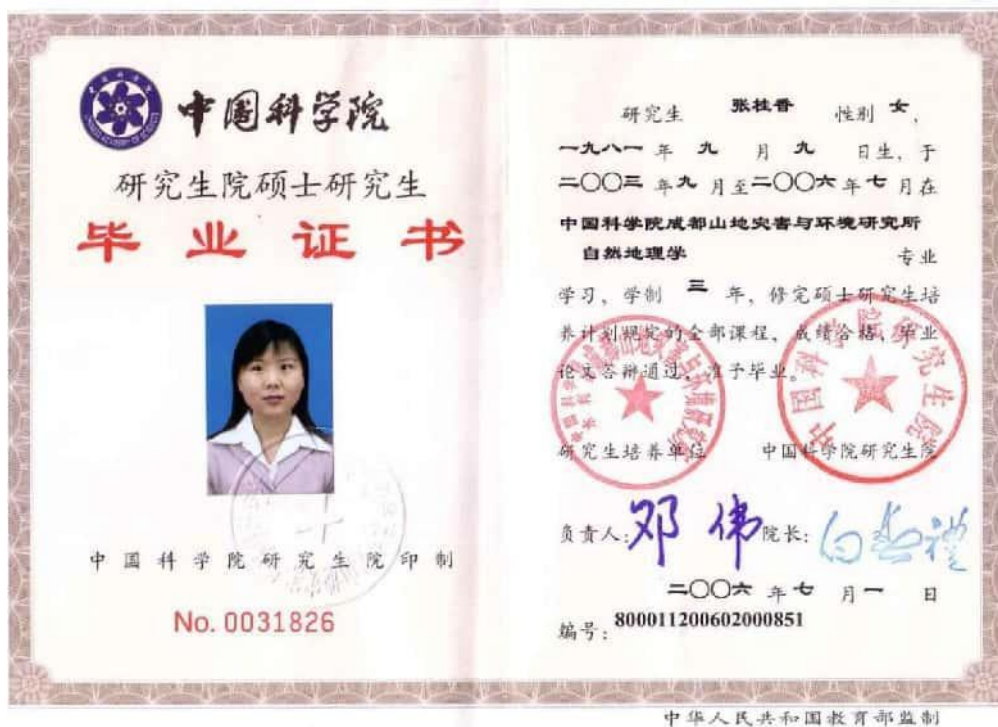 中国科学院
研究生院硕士研究生
毕业证书
中国科学院研究生院印制
No. 0031826
研究生 张桂香 性别 女，
一九八一 年 九 月 九 日生，于
二〇〇三 年 九 月至 二〇〇六 年 七 月在
中国科学院成都山地灾害与环境研究所
自然地理学 专业
学习，学制 三 年，修完硕士研究生培
养计划规定的全部课程，成绩合格，毕业
论文答辩通过，准予毕业。
研究生培养单位 中国科学院研究生院
负责人：邓伟 院长：白春礼
二〇〇六 年 七 月 一 日
编号：800011200602000851
中国科学院研究生院
中华人民共和国教育部监制